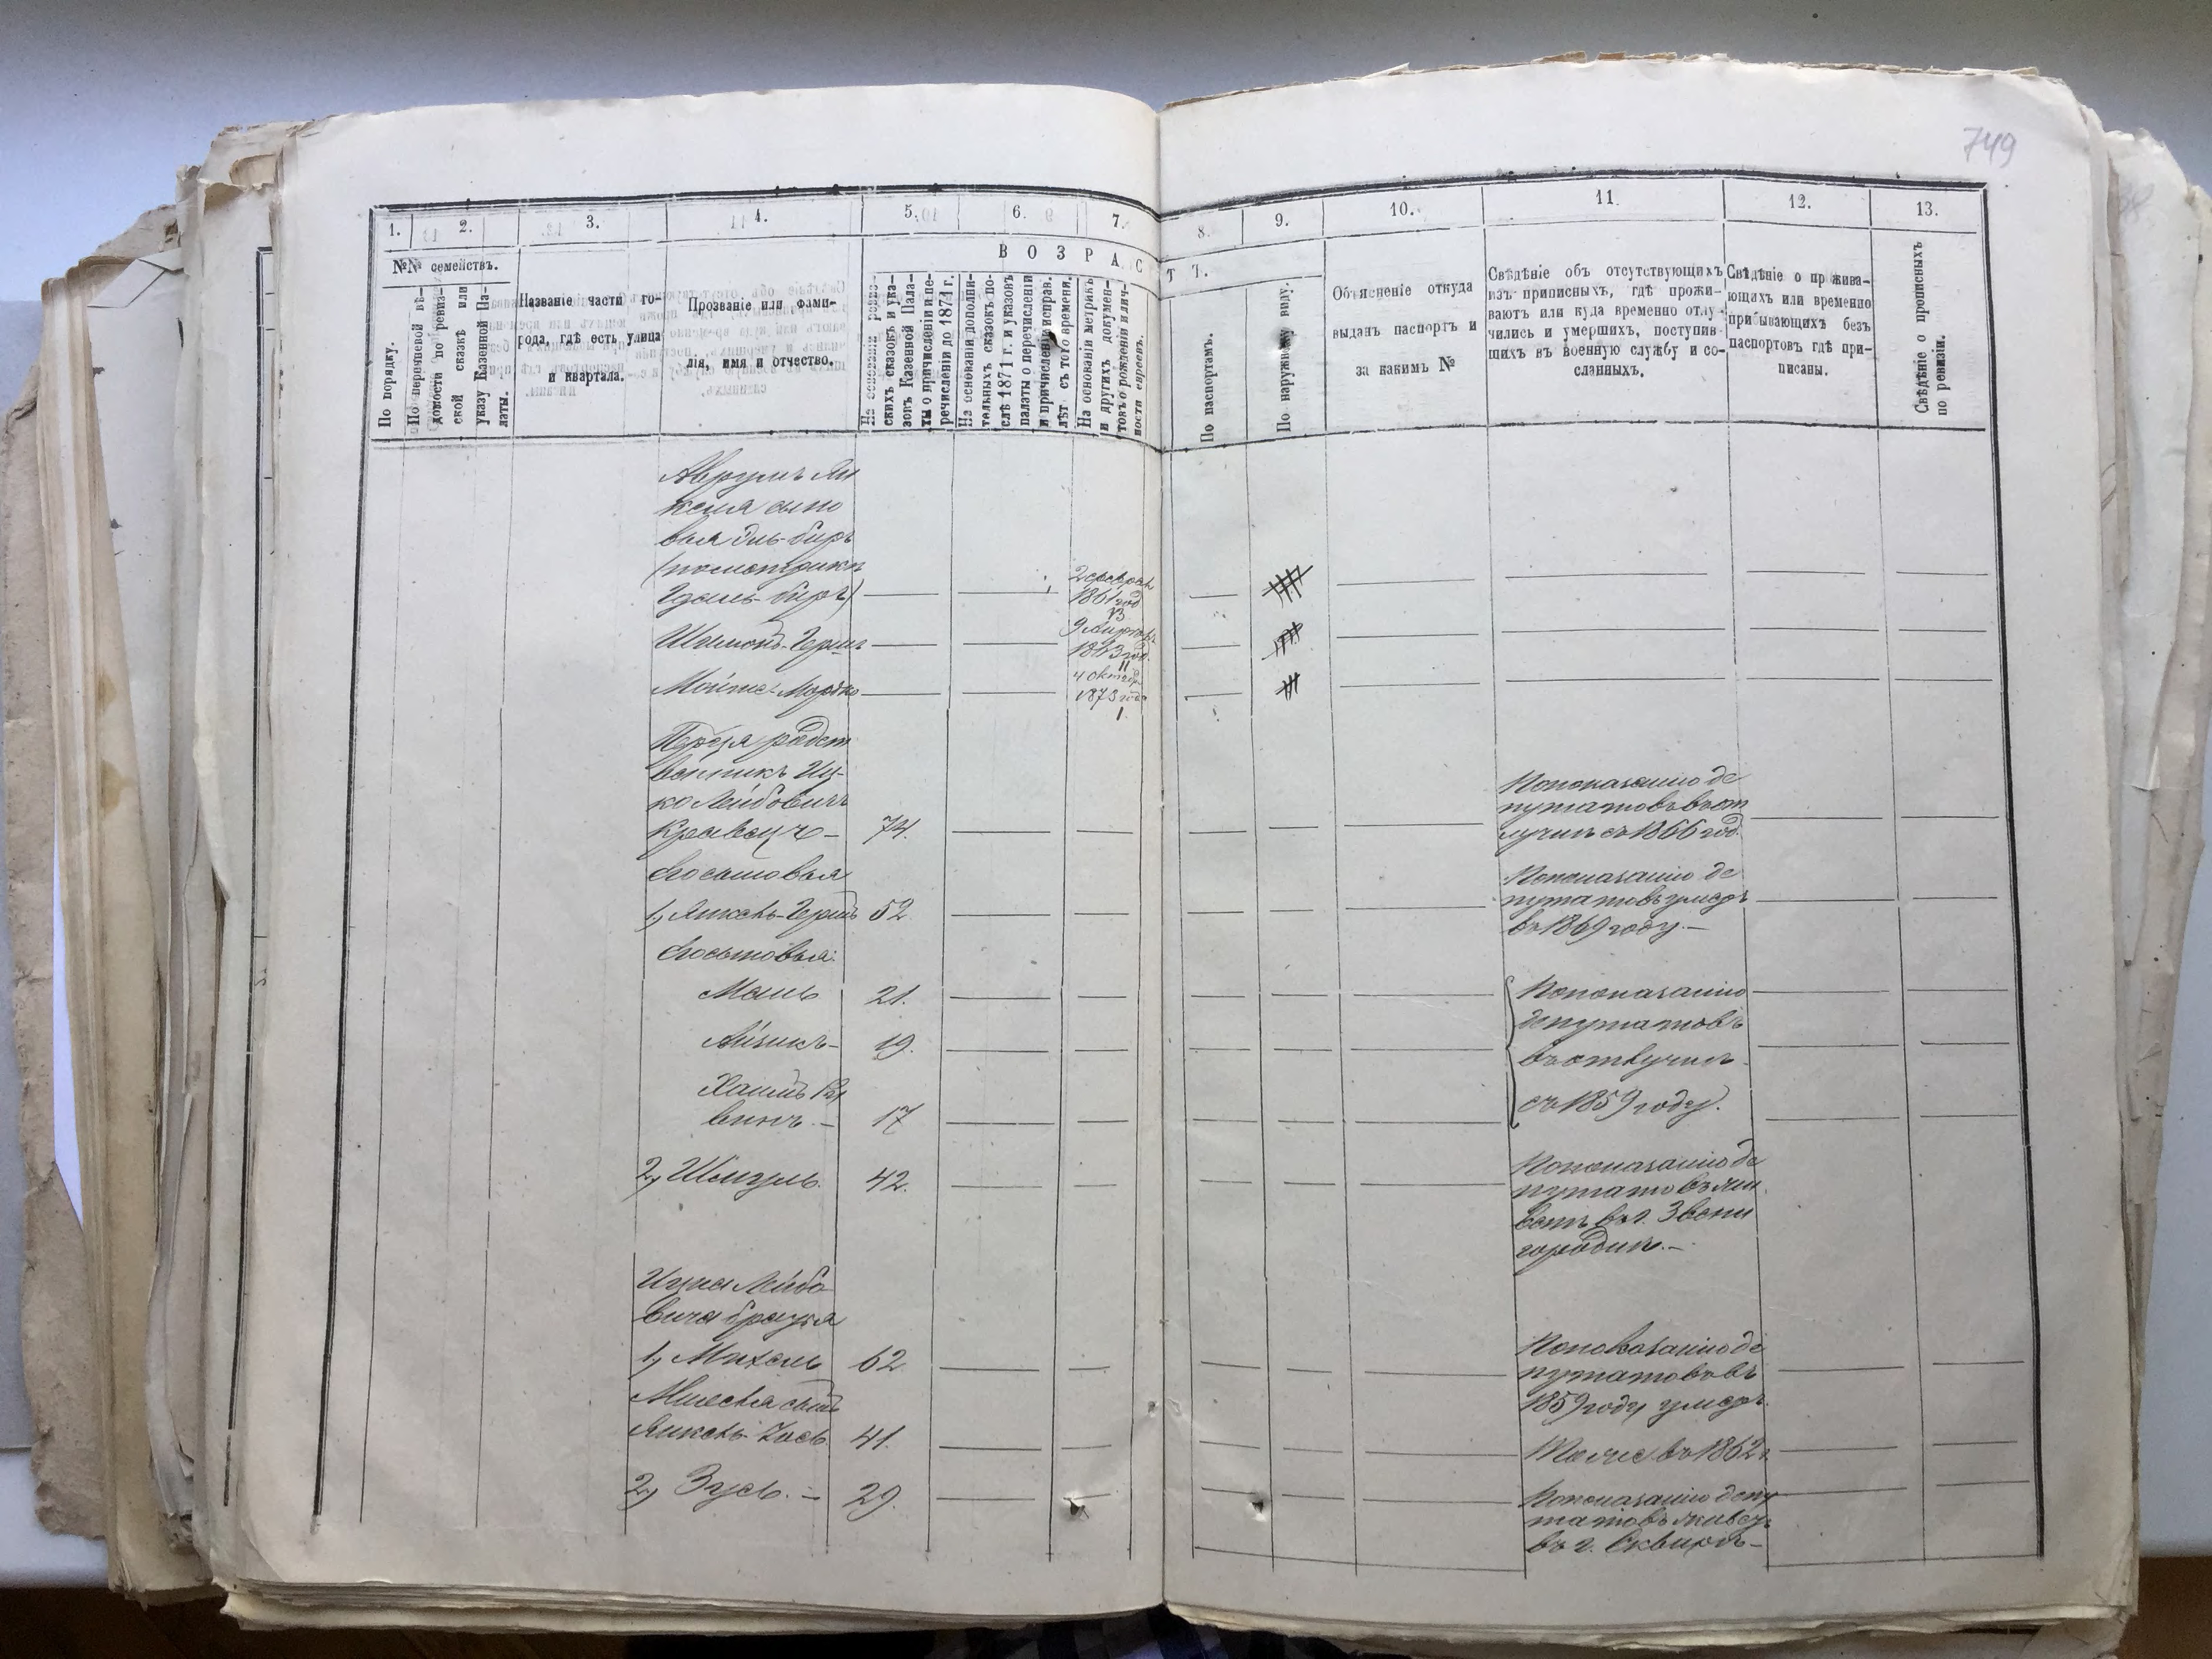 749
1.
2.
3.
4.
5.
6.
7.
8.
9.
10.
11.
12.
13.
№№ семействъ.
По порядку.
По перечневой вѣ-
домости по ревиз-
ской сказкѣ или
указу Казенной Па-
латы.
Названіе части го-
рода, гдѣ есть улица
и квартала.
Прозваніе или фами-
лія, имя и отчество.
ВОЗРАСТЪ.
На основаніи ревиз-
скихъ сказокъ и ука-
зовъ Казенной Пала-
ты о причисленіи и пе-
речисленіи до 1871 г.
На основаніи дополни-
тельныхъ сказокъ по-
слѣ 1871 г. и указовъ
палаты о перечисленіи
и причисленіи исправ.
лѣт съ того времени.
На основаніи метрикъ
и другихъ докумен-
товъ о рожденіи и лич-
ности евреевъ.
По паспортамъ.
По наружному виду.
Объясненіе откуда
выданъ паспортъ и
за какимъ №
Свѣдѣніе объ отсутствующихъ
изъ приписныхъ, гдѣ прожи-
ваютъ или куда временно отлу-
чились и умершихъ, поступив-
шихъ въ военную службу и со-
сланныхъ.
Свѣдѣніе о прожива-
ющихъ или временно
прибывающихъ безъ
паспортовъ гдѣ при-
писаны.
Свѣдѣніе о прописныхъ
по ревизіи.
Аврумъ Ян
келя сыно
вья Эль-биръ
(по метрикѣ
Гдаль-биръ)
2 февраля
1861 год
13
Шимонъ-Герш
9 Апрѣля
1863 год.
11
Мойше-Мордко
4 октяб
1873 года
1.
Перваго родст
венникъ Иц-
ко Лейбовичъ
Кравец 74.
По показанію де
путатовъ въ от
лучкѣ съ 1866 год.
Его сыновья
1, Янкель-Герш 52
По показанію де
путатовъ умеръ
въ 1869 году.—
Его сыновья:
Маль 21.
Айзикъ— 19.
Хаимъ Ра
винъ.— 17
По показанію
депутатовъ
въ отлучкѣ
съ 1859 году.
2, Шмуль. 42.
По показанію де
путатовъ жи
ветъ въ г. Звени
городкѣ.—
Ицка Лейбо
вича братья
1, Михель 62
По показанію де
путатовъ въ
1859 году умеръ.
Михеля сынъ
Янкель-Іось 41.
Тоже въ 1862 г.
2, Зусь.— 29.
По показанію депу
татовъ живетъ
въ г. Сквирѣ—